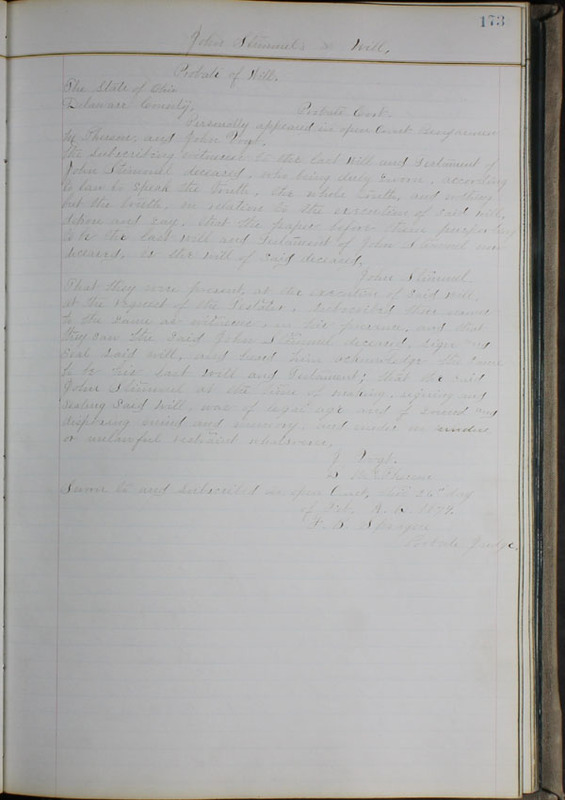 173
John Stimmel's Will,
Probate of Will.
The State of Ohio
Delaware County, Probate Court.
Personally appeared in open Court
and John Vogt.
the subscribing witnesses to the last will and Testament of
John Stimmel deceased, who being duly sworn, according
to law to speak the truth, the whole truth, and nothing
but the truth, in relation to the execution of said will,
depose and say, that the paper before them purporting
to be the last will and Testament of John Stimmel now
deceased, is the will of said deceased,
John Stimmel.
That they were present, at the execution of said will
at the request of the testator, subscribed their names
to the same as witnesses, in his presence, and that
they saw the said John Stimmel deceased sign and
seal said will, and heard him acknowledge the same
to be his last will and Testament; that the said
John Stimmel at the time of making, signing and
sealing said will, was of legal age and of sound and
disposing mind and memory, and under no undue
or unlawful restraint whatsoever.
J. Vogt.
Sworn to and subscribed in open Court, this 26" day
of Feb. A.D. 1879.
Probate Judge,